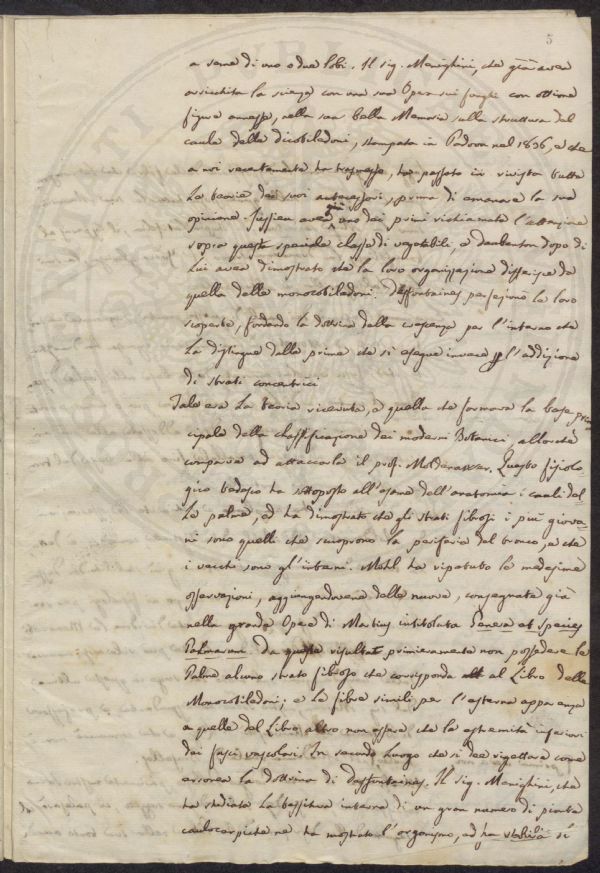 5
a seme di uno o due lobi. Il sig. Meneghini, che già avea
arricchita la scienza con una sua Opera sui funghi con ottime
figure annesse, nella sua bella Memoria sulla struttura del
caule delle dicotiledoni, stampata in Padova nel 1836, e che
a noi recentemente ha trasmesso, ha passato in rivista tutte
Le teorie dei suoi antecessori, prima di emanare la sua
opinione. Jussieu avea già uno dei primi richiamato l'attenzione
sopra questa speciale classe di vegetabili, e Daubenton dopo di
Lui avea dimostrato che la loro organizzazione differisce da
quella delle monocotiledoni. Desfontaines perfezionò la loro
scoperta, fondando la dottrina della crescenza per l'interno che
La distingue dalle prime che si esegue invece pp l'addizione
di strati concentrici
Tale era La teoria ricevuta, e quella che formava la base prin
cipale della classificazione dei moderni Botanici, allorchè
comparve ad attaccarla il prof. Questo fisiolo-
gico tedesco ha sottoposto all'esame dell'anatomia i cauli del-
Le palme, ed ha dimostrato che gli strati fibrosi i più giova-
ni sono quelli che scuoprono la periferia del tronco, e che
i vecchi sono gl'interni. Mohl. ha ripetuto le medesime
osservazioni, aggiungendovene delle nuove, consegnate già
nella grande Opera di Martius intitolata Genera et Species
Palmarum. Da queste risultat primieramente non possedere le
Palme alcuno strato fibroso che corrisponda al Libro delle
Monocotiledoni; e Le fibre simili per l'esterna apparenza
a quelle del Libro altro non essere che le estremità inferiori
dei fasci vascolari. In secondo Luogo che si dee rigettare come
erronea la dottrina di Desfontaines. Il sig. Meneghini, che
ha studiato La tessitura interna di un gran numero di piante
caulocarpiche ne ha mostrato l'organismo, ed ha stabilità si